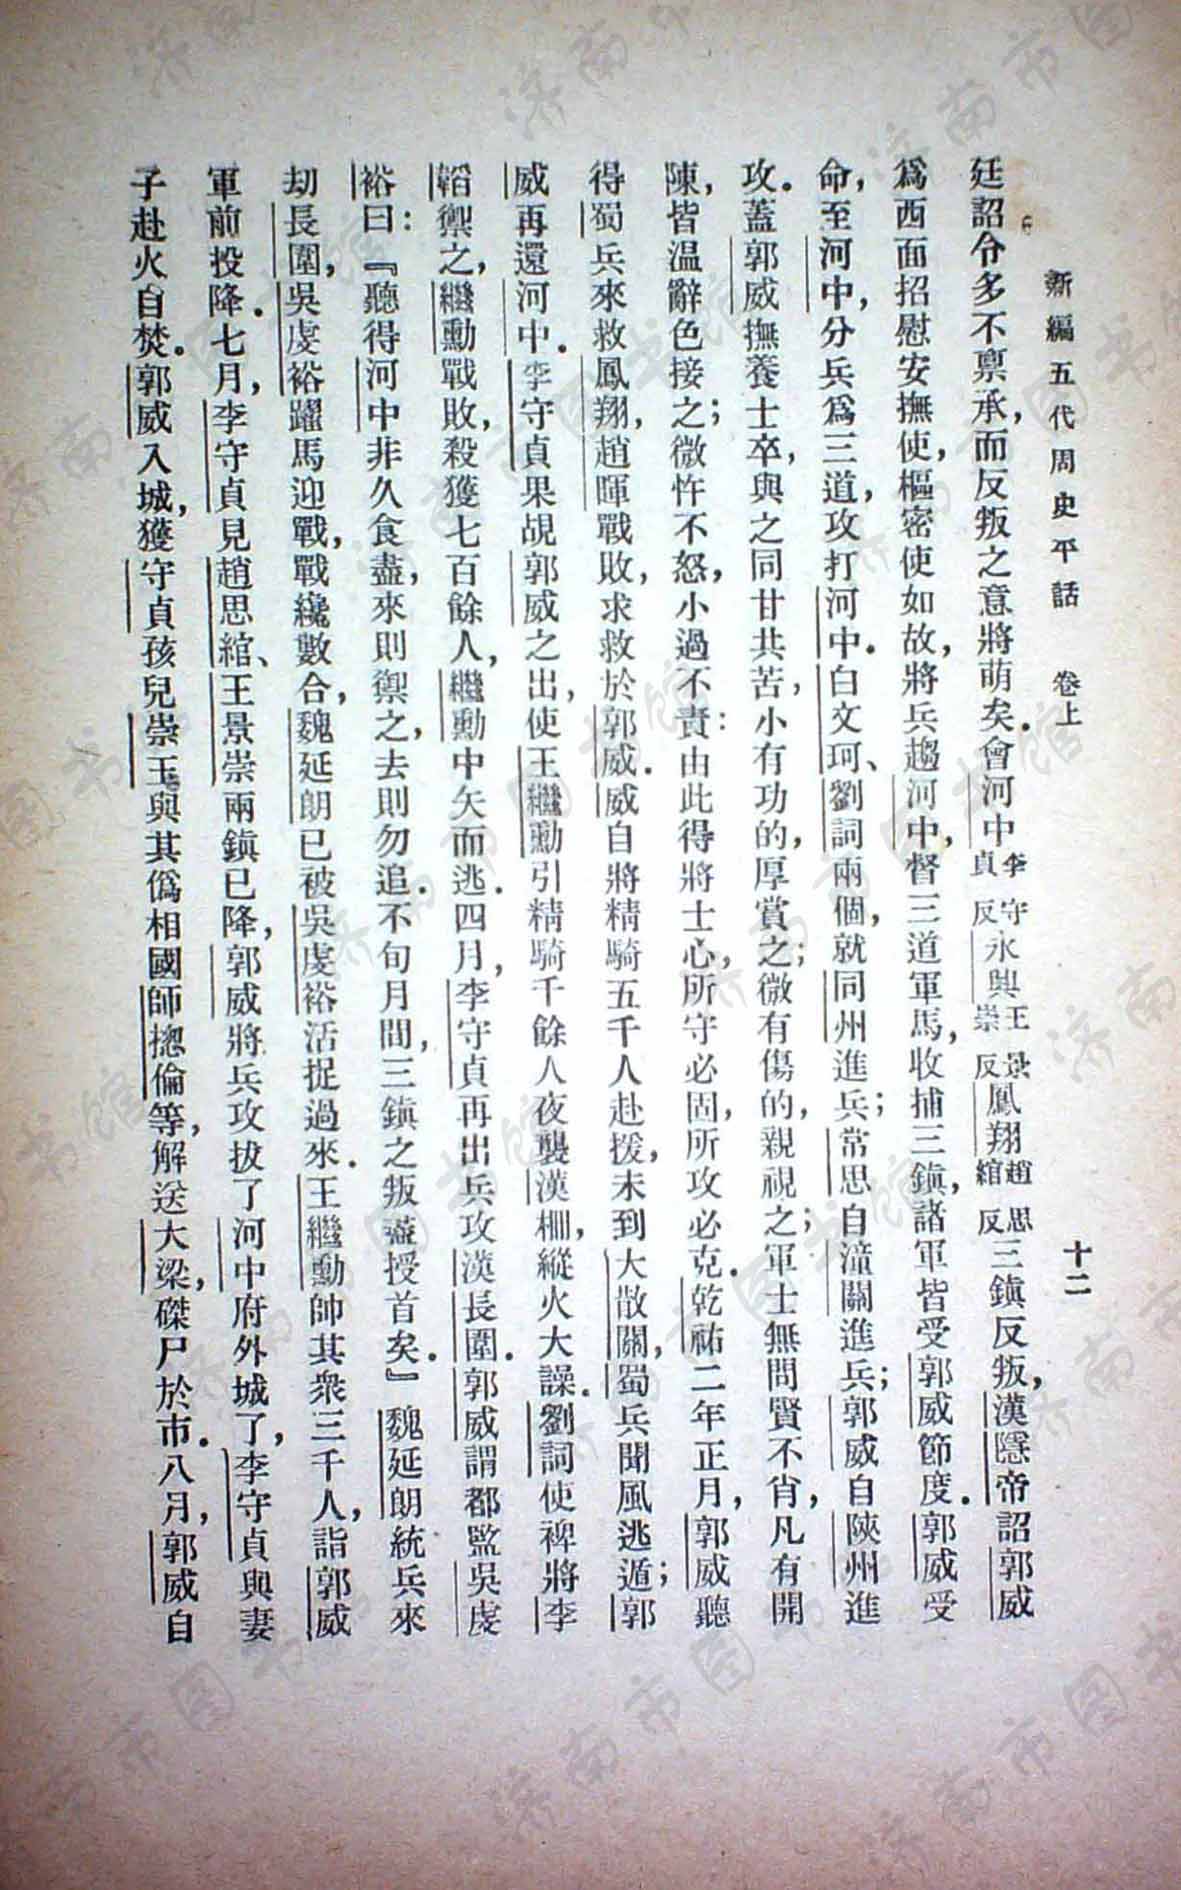 新編五代周史平話　卷上　十二
廷詔令多不禀承，而反叛之意將萌矣．會河中李守貞反永興王景崇反鳳翔趙思綰反三鎮反叛，漢隱帝詔郭威
爲西面招慰安撫使，樞密使如故，將兵趨河中，督三道軍馬，收捕三鎮，諸軍皆受郭威節度．郭威受
命，至河中，分兵爲三道，攻打河中．白文珂、劉詞兩個，就同州進兵；常思自潼關進兵；郭威自陝州進
攻．蓋郭威撫養士卒，與之同甘共苦，小有功的，厚賞之；微有傷的，親視之；軍士無問賢不肖，凡有開
陳，皆溫辭色接之；微忤不怒，小過不責：由此得將士心，所守必固，所攻必克．乾祐二年正月，郭威聽
得蜀兵來救鳳翔，趙暉戰敗，求救於郭威．威自將精騎五千人赴援，未到大散關，蜀兵聞風逃遁；郭
威再還河中．李守貞果覘郭威之出，使王繼勳引精騎千餘人夜襲漢柵，縱火大譟．劉詞使裨將李
韜禦之，繼勳戰敗，殺獲七百餘人，繼勳中矢而逃．四月，李守貞再出兵攻漢長圍．郭威謂都監吳虔
裕曰：『聽得河中非久食盡，來則禦之，去則勿追．不旬月間，三鎮之叛蓋授首矣．』魏延朗統兵來
劫長圍，吳虔裕躍馬迎戰，戰纔數合，魏延朗已被吳虔裕活捉過來．王繼勳帥其衆三千人，詣郭威
軍前投降．七月，李守貞見趙思綰、王景崇兩鎮已降，郭威將兵攻拔了河中府外城了，李守貞與妻
子赴火自焚．郭威入城，獲守貞孩兒崇玉與其僞相國師摠倫等，解送大梁，磔尸於市．八月，郭威自
济南市图书馆